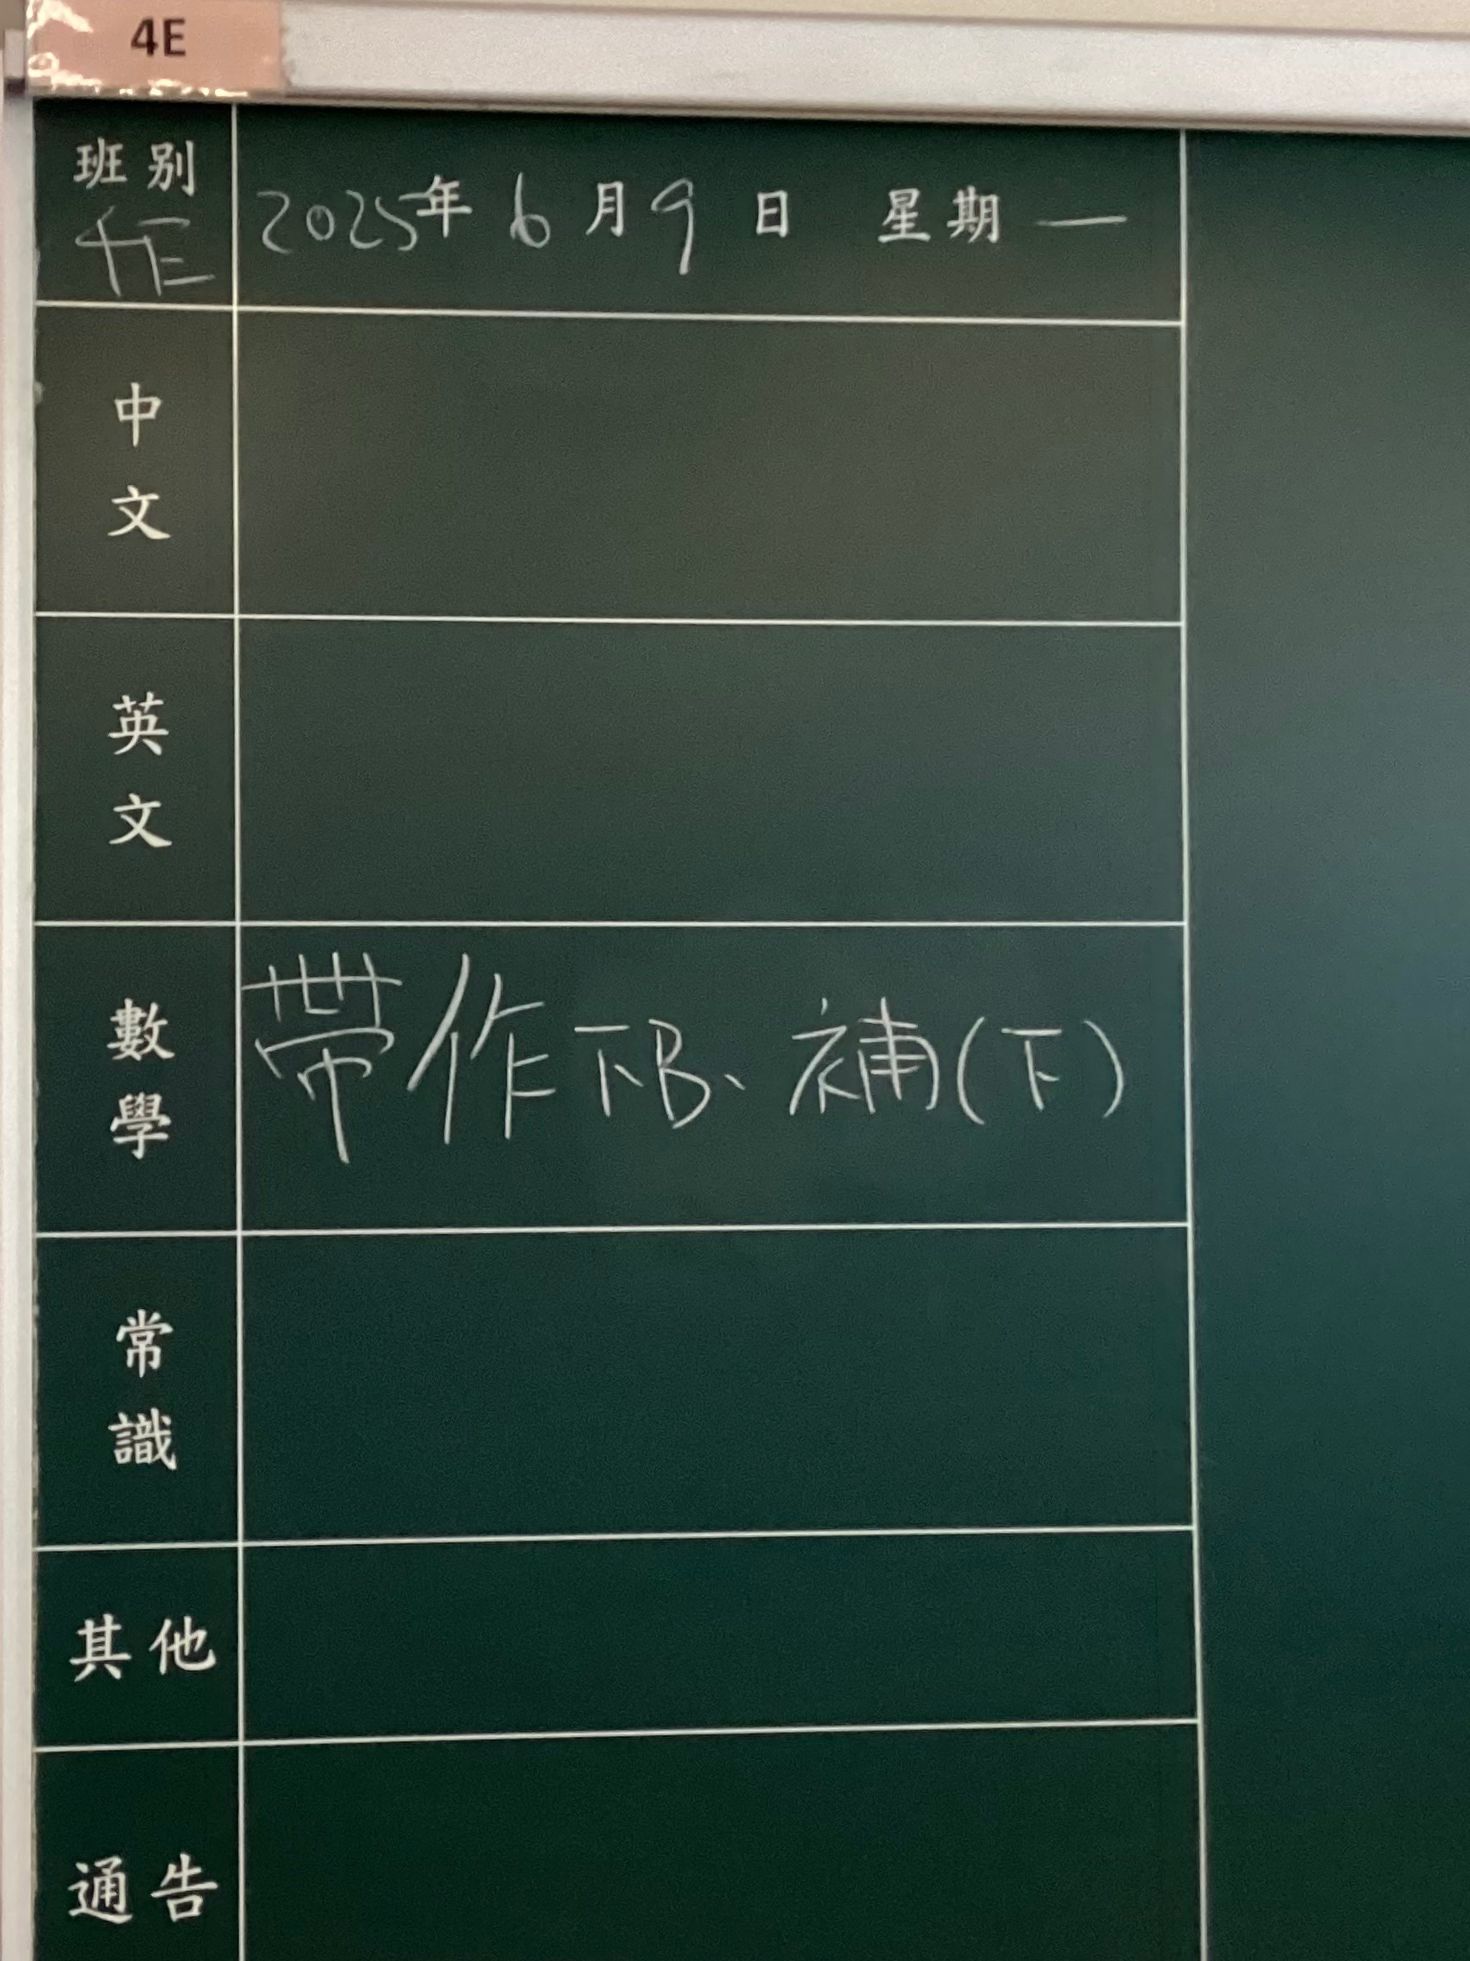 4E
班別
4E
2025年6月9日 星期一
中文
英文
數學
帶作下B、補(下)
常識
其他
通告